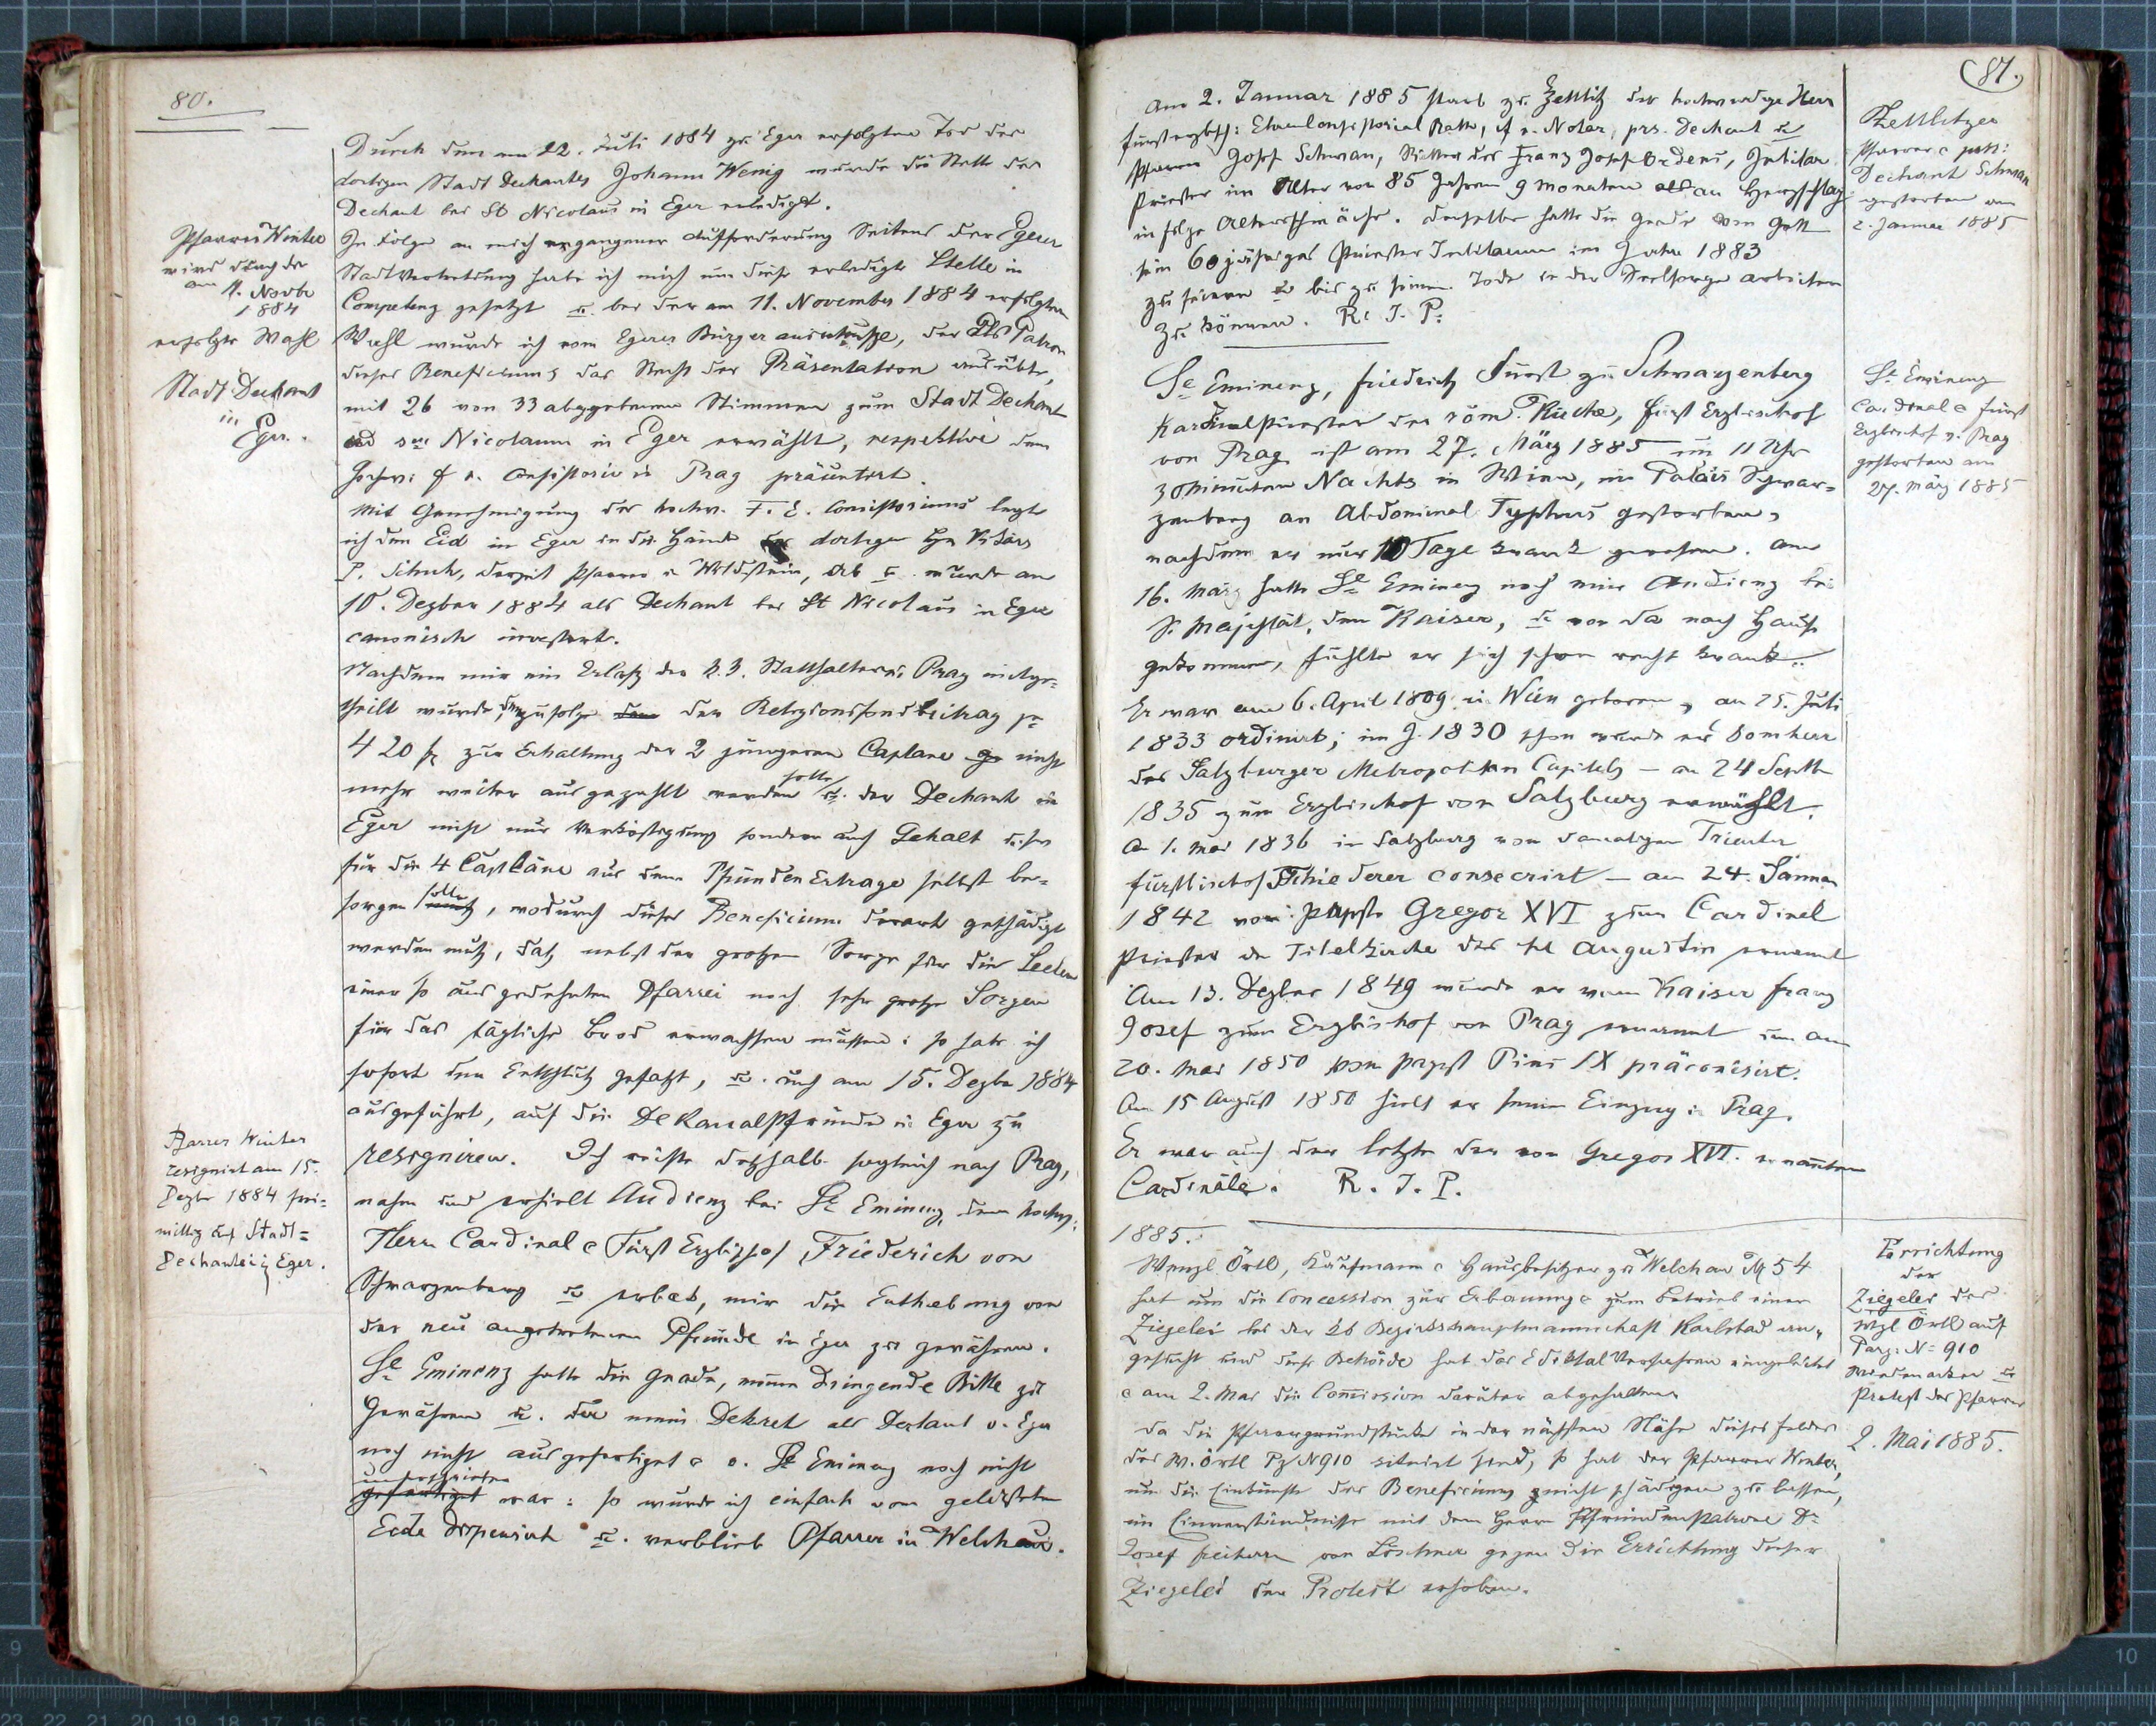 80.
Durch den am 22. Juli 1884 zu Eger erfolgten Tod des
dortigen Stadt Dechantes Johann Wenig wurde die Stelle des
Dechant bei St Nicolaus in Eger erledigt.
Pfarrer Winter
wird durch die
am 11. Novbr
1884
erfolgte Wahl
Stadt Dechant
in
Eger.
In Folge an mich ergangener Aufforderung Seitens der Egerer
Stadtvertretung habe ich mich um diese erledigte Stelle in
Competenz gesetzt u. bei der am 11. November 1884 erfolgten
Wahl wurde ich vom Egerer Bürgerausschuße, der als Patron
dieses Beneficiums das Recht der Präsentation ausübte,
mit 26 von 33 abgegebenen Stimmen zum Stadt Dechant
ad Nicolaum in Eger erwählt, respektive dem
hochw: f. e. Consistorio in Prag präsentirt.
Mit Genehmigung des hochw. F. E. Consistoriums legte
ich den Eid in Eger in die Hände des dortigen Hn Vikärs
P. Schuh, derzeit Pfarrer in Wildstein, ab u. wurde am
10. Dezber 1884 als Dechant bei St Nicolaus in Eger
canonisch investirt.
Nachdem mir ein Erlaß der k.k. Statthalterei Prag mitge-
theilt wurde, demzufolge der Religionsfondbeitrag pr
420 fl zur Erhaltung der 2 jüngeren Caplane nicht
mehr weiter ausgezahlt werden sollte u. der Dechant in
Eger nicht nur Verköstigung sondern auch Gehalt
für die 4 Capläne aus dem Pfründen Ertrage selbst be-
sorgen sollte, wodurch dieses Beneficium derart geschädigt
werden muß, daß nebst der großen Sorge für die Seelen
einer so ausgedehnten Pfarrei noch sehr große Sorgen
für das tägliche Brod erwachsen müssen: so habe ich
sofort den Entschluß gefaßt, u. auch am 15. Dezbr 1884
ausgeführt, auf die Dekanalpfründe in Eger zu
resigniren. Ich reiste deßhalb sogleich nach Prag,
nahm und erhielt Audienz bei Se Eminenz, dem hochw:
Herrn Cardinal & Fürst Erzbischof Friederich von
Schwarzenberg u. erbat, mir die Enthebung von
der neu angetretenen Pfründe in Eger zu gewähren.
Se Eminenz hatte die Gnade, meine dringende Bitte zu
Gewähren u. da mein Dekret als Dechant v. Eger
noch nicht ausgefertiget & v. Se Eminenz noch nicht
unterschrieben
gefertiget war: so wurde ich einfach vom geleisteten
Eide dispensirt u. verblieb Pfarrer in Welchau.
Pfarrer Winter
resignirt am 15.
Dezbr 1884 frei-
willig auf Stadt-
Dechantei in Eger.
81.
Am 2. Januar 1885 starb zu Zettlitz der hochwürdige Herr
fürsterzbsch: Ehrenconsistorial Rath, f. e. Notar, prs. Dechant u.
Pfarrer Josef Schwan, Ritter des Franz Josef-Ordens, Jubilar
Priester im Alter von 85 Jahren 9 Monaten an Herzschlag
in folge Altersschwäche. Derselbe hatte die Gnade von Gott
sein 60 jähriges Priester Jubilaeum im Jahre 1883
zu feiern u. bis zu seinem Tode in der Seelsorge arbeiten
zu können. R. I. P.
Zettlitzer
Pfarrer & pers:
Dechant Schwan
gestorben am
2. Januar 1885
Se Eminenz, Friedrich Fürst zu Schwarzenberg
Kardinalpriester der röm. Kirche, Fürst Erzbischof
von Prag ist am 27. März 1885 um 11 Uhr
30 Minuten Nachts in Wien, im Palais Schwar-
zenberg an Abdominal Typhus gestorben,
nachdem er nur 10 Tage krank gewesen. Am
16. März hatte Se Eminenz noch eine Audienz bei
Sr Majestät, dem Kaiser, u. von da nach Hause
gekommen, fühlte er sich schon recht krank.
Er war am 6. April 1809 in Wien geboren, am 25. Juli
1833 ordinirt; im J. 1830 schon wurde er Domherr
des Salzburger Metropolitan Capitels – am 24 Septbr
1835 zum Erzbischof von Salzburg erwählt.
Am 1. Mai 1836 in Salzburg vom damaligen Trienter
Fürstbischof Tschiederer consecrirt – am 24. Jänner
1842 vom Papste Gregor XVI zum Cardinal
Priester der Titelkirche des hl Augustin ernannt
Am 13. Dezber 1849 wurde er vom Kaiser Franz
Josef zum Erzbischof von Prag ernannt und am
20. Mai 1850 vom Papst Pius IX präconisirt.
Am 15 August 1850 hielt er seinen Einzug in Prag.
Er war auch der letzte der von Gregor XVI. ernannten
Cardinäle. R. I. P.
Se Eminenz
Cardinal & Fürst
Erzbischof v. Prag
gestorben am
27. März 1885
1885.
Wenzl Örtl, Kaufmann & Hausbesitzer zu Welchau № 54
hat um die Concession zur Erbauung & zum Betrieb einer
Ziegelei bei der kk Bezirkshauptmannschaft Karlsbad an-
gesucht und diese Behörde hat das Ediktal Verfahren eingeleitet
& am 2. Mai die Commission darüber abgehalten.
Da die Pfarrgrundstücke in der nächsten Nähe dieses Feldes
des W. Örtl Pz N 910 situirt sind, so hat der Pfarrer Winter,
um die Einkünfte des Beneficiums nicht schädigen zu lassen,
im Einverständnisse mit dem Herrn Pfründenpatron Dr
Josef Freiherrn von Löschner gegen die Errichtung dieser
Ziegelei den Protest erhoben.
Errichtung
der
Ziegelei des
Wzl Örtl auf
Parz: N= 910
u.
Protest des Pfarrers
2. Mai 1885.